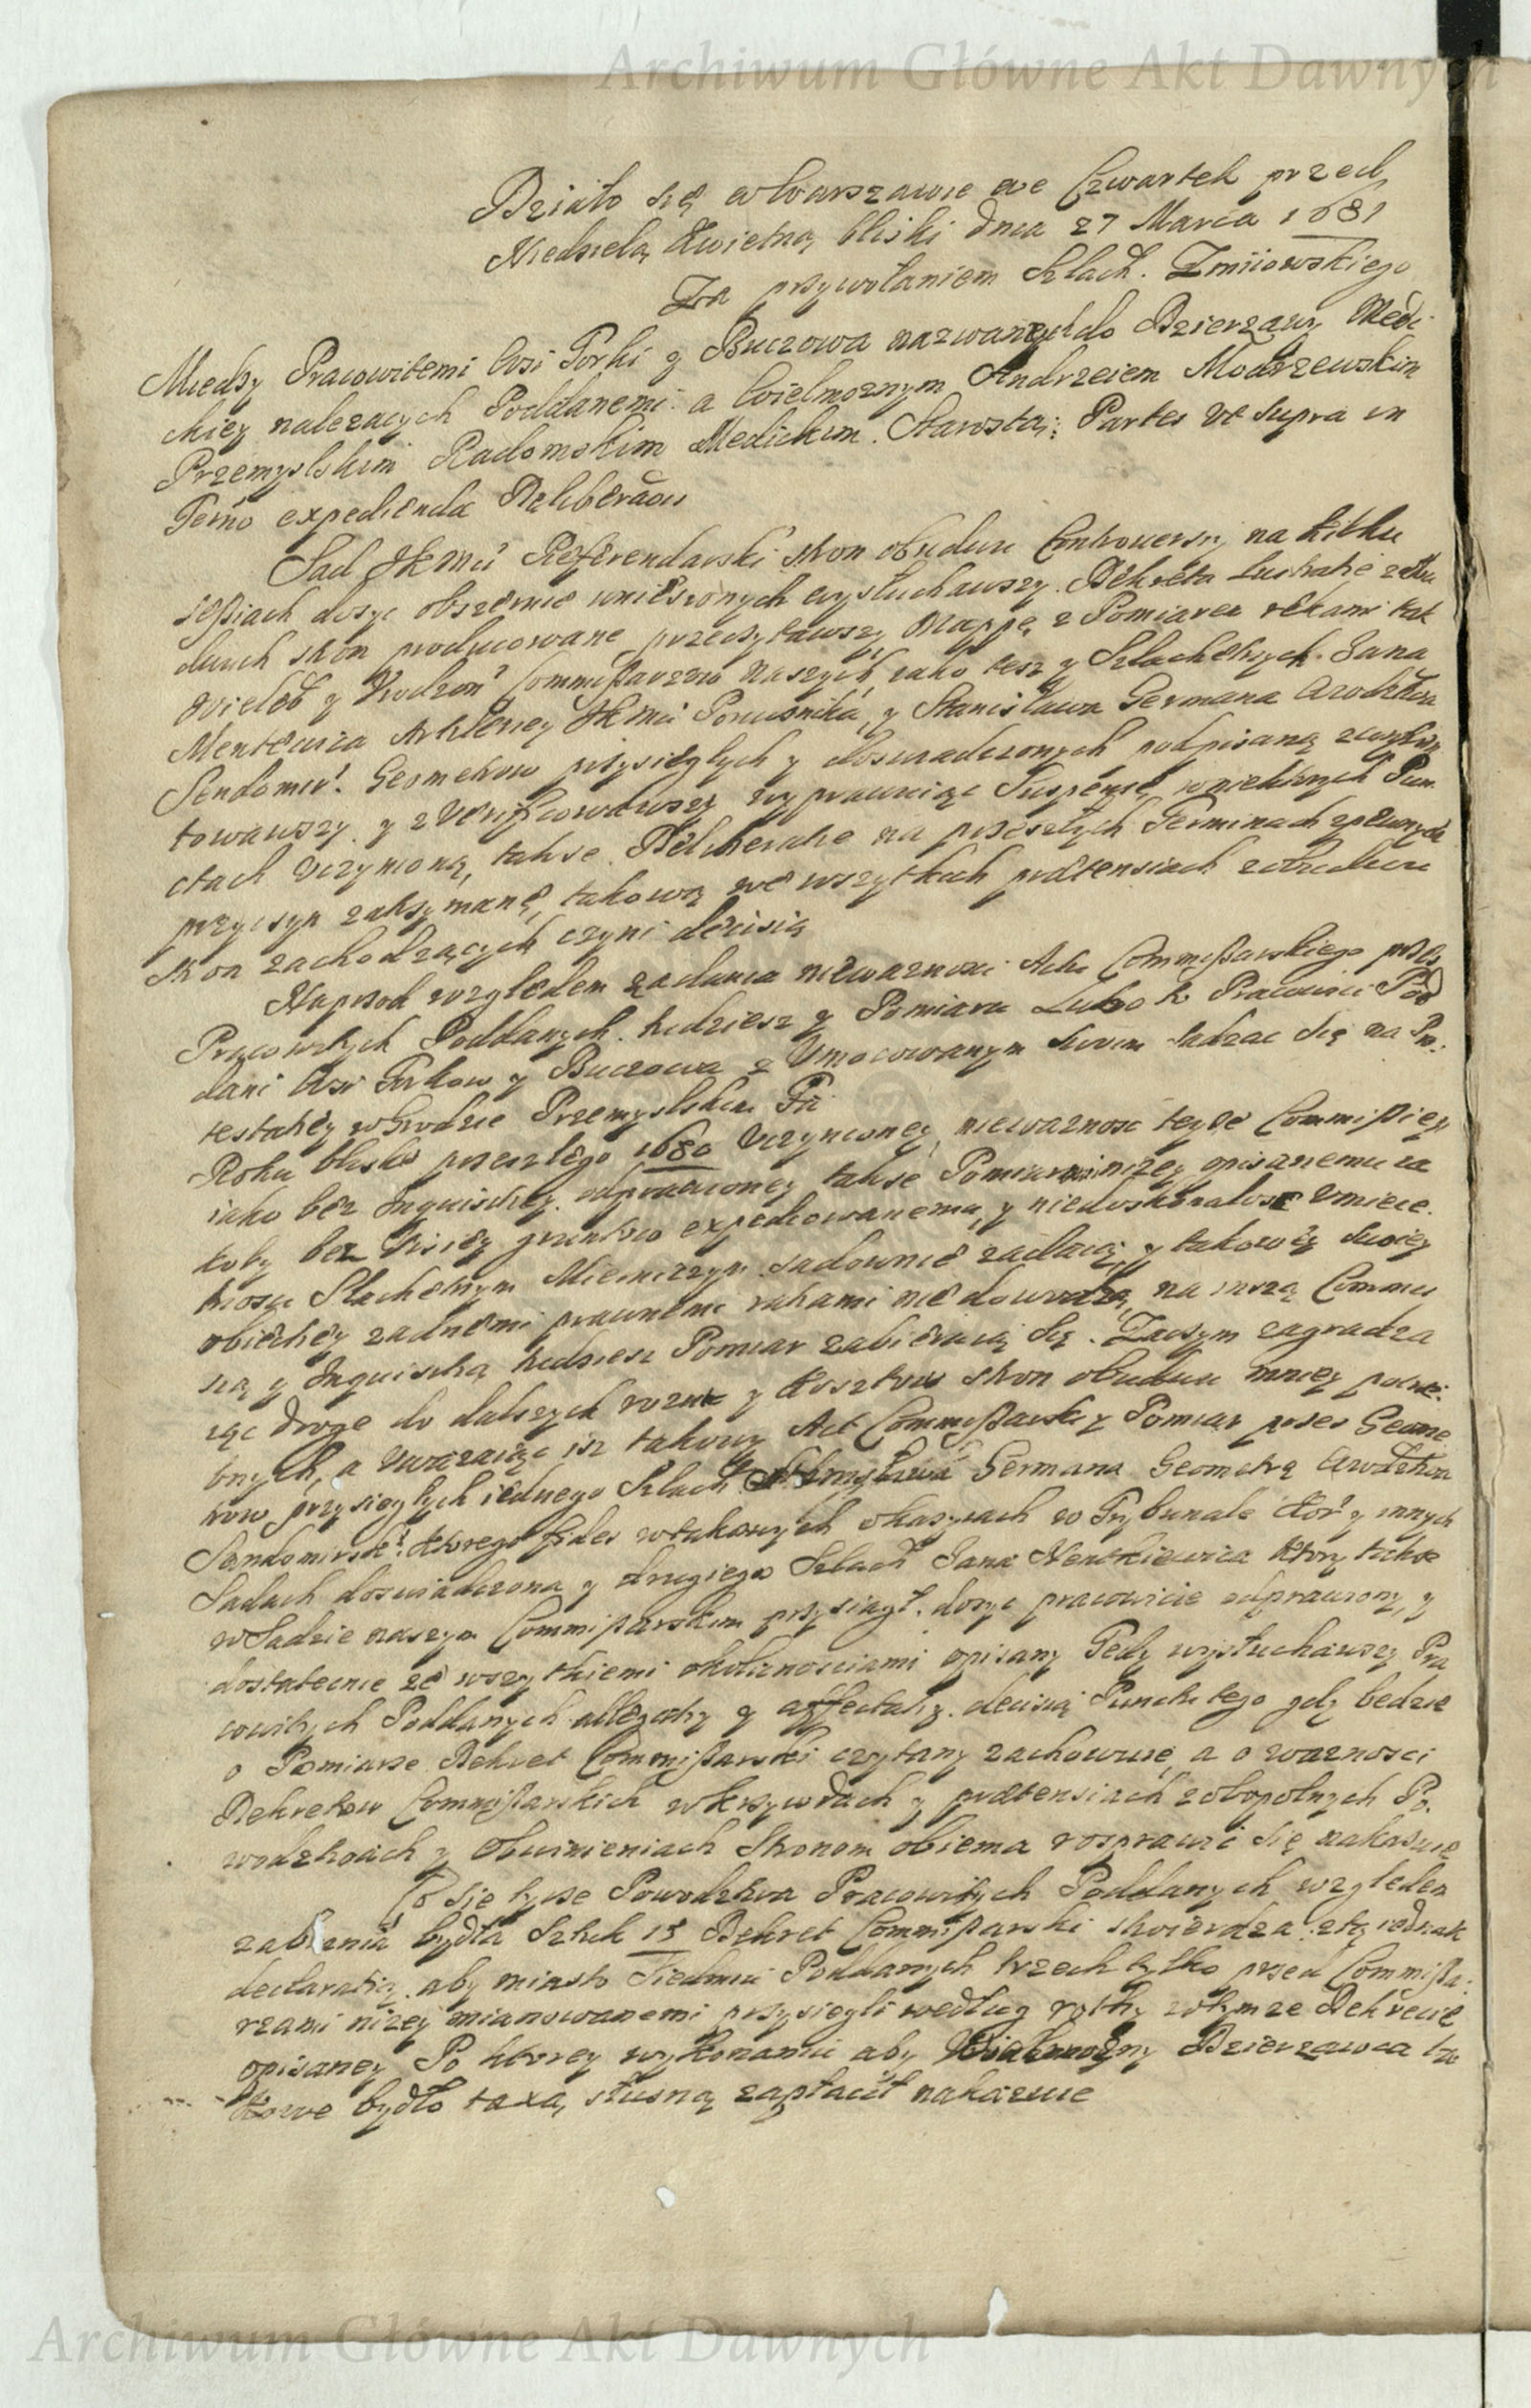 Archiwum Główne Akt Dawnych
Działo się w Warszawie we Czwartek przed
Niedzielą Kwietną bliski dnia 27 Marca 1681
Za przywołaniem Szlach. Zmiiowskiego
Miedzy Pracowitemi Wsi Torki y Buczowa nazwanych do Dzierzawy Medi-
ckiey nalezących Poddanemi a Wielmoznym Andrzeiem Modrzewskim
Przemyslskim Radomskim Medickim Starostą: Partes vt supra in
Termo expedienda Deliberaõis
Sąd JKMci Referendarski stron obudwu Controuersiy na kilku
sessiach dosyc obszernie wniesionych wysłuchawszy. Dekreta Lustratie z obu
dwuch stron producowane przeczytawszy Mappę z Pomiaru rękami tak
Wieleb y Vrodzon Commissarzow Naszych iako tesz y Szlachetnych Jana
Mentewica Artileriey JKMci Porucznika, y Stanisława Germana Wodztwa
Sendomir. Geometrow przysięgłych y doswiadczonych podpisaną
towawszy y zVerificowawszy wyprawuiąc Suspensę w niektorych Pun-
ctach vczynioną, takze Deliberatie na przeszłych Terminach z pewnych
przyczyn zatrzymane, takową we wszytkich praetensiach z obudwu
stron zachodzących czyni decisią
Naprzod względem zadania niewaznosci Actu Commissarskiego przez
Pracowitych Poddanych tudziesz y Pomiaru Lubo to Pracowici Pod
dani Wsi Torkow y Buczowa z Vmocowanym swoim sadząc się na Pro-
testatiey w Grodzie Przemyslskim Fr̃
Roku blisko przeszłego 1680 Vczynioney, niewaznosc teyze Commissiey
iako bez Inquisitiey odprawioney takze Pomiarowi nizey opisanemu ia
koby bez wiziey gruntow expediowanemu, y niedoskonałosc Vmieię-
tnosci Slachetnym Mierniczym sądownie zadaią, y takowey swoiey
obiekciey zadnemi prawnemi rakami nie dowodzą, na inszą Commis
sią y Inquisitią tudziesz Pomiar zabieraią się. Zaczym zagradza
iąc drogę do dalszych y kosztow stron obudwu mniey potrze-
bnych, a Vwazaiąc isz takowy Act Commissarski y Pomiar przes Geome
trow przysięgłych iednego Szlach. Stanisława Germana Geometrę Wodztwa
Sendomirsk: ktorego fides w takowych okazyiach w Trybunale Kor y innych
Sądach doswiadczona y drugiego Szlach Jana Mentkiewica ktory takze
w Sądzie naszym Commissarskim przysiągł, dosyc pracowicie odprawiony, y
dostatecznie ze wszytkiemi okolicznosciami opisany Tedy wysłuchawszy Pra
cowitych Poddanych allegatiy y affectatiy. decisią Punctu tego gdy będzie
o Pomiarze Dekret Commissarski czytany zachowuie, a o waznosci
Dekretow Commissarskich w krzywdach y praetensiach zobopolnych Po-
wodztwach y Obwinieniach Stronom obiema rosprawić się nakazuie
Co się tycze Powodztwa Pracowitych Poddanych względem
zabrania bydła Sztuk 15 Dekret Commissarski stwierdza z tą iednak
declaratią aby miasto Siedmiu Poddanych trzech tylko przed Commissa-
rzami nizey mianowanemi przysięgli według roty w tymze Dekrecie
opisaney Po ktorey wykonaniu aby Wielmozny Dzierzawca ta
kowe bydło taxą słuszną zapłacił nakazuie
Archiwum Główne Akt Dawnych